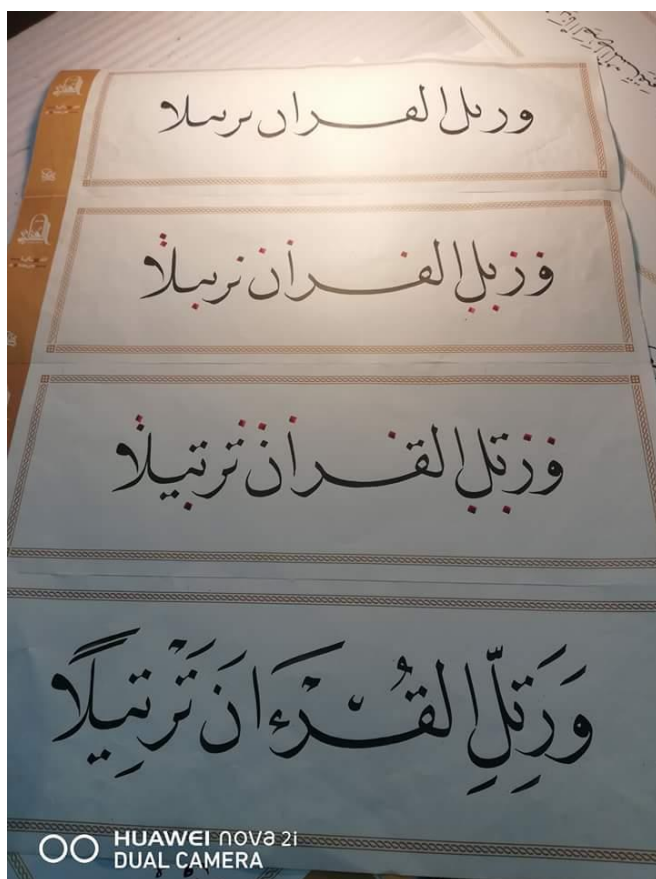 ورٮل الڡراں ٮرٮٮلا
ورٮل الڡراں ٮرٮٮلا
ورتل القران ترتيلا
وَرَتِّلِ القُرْءَانَ تَرْتِيلًا
HUAWEI nova 2i
DUAL CAMERA